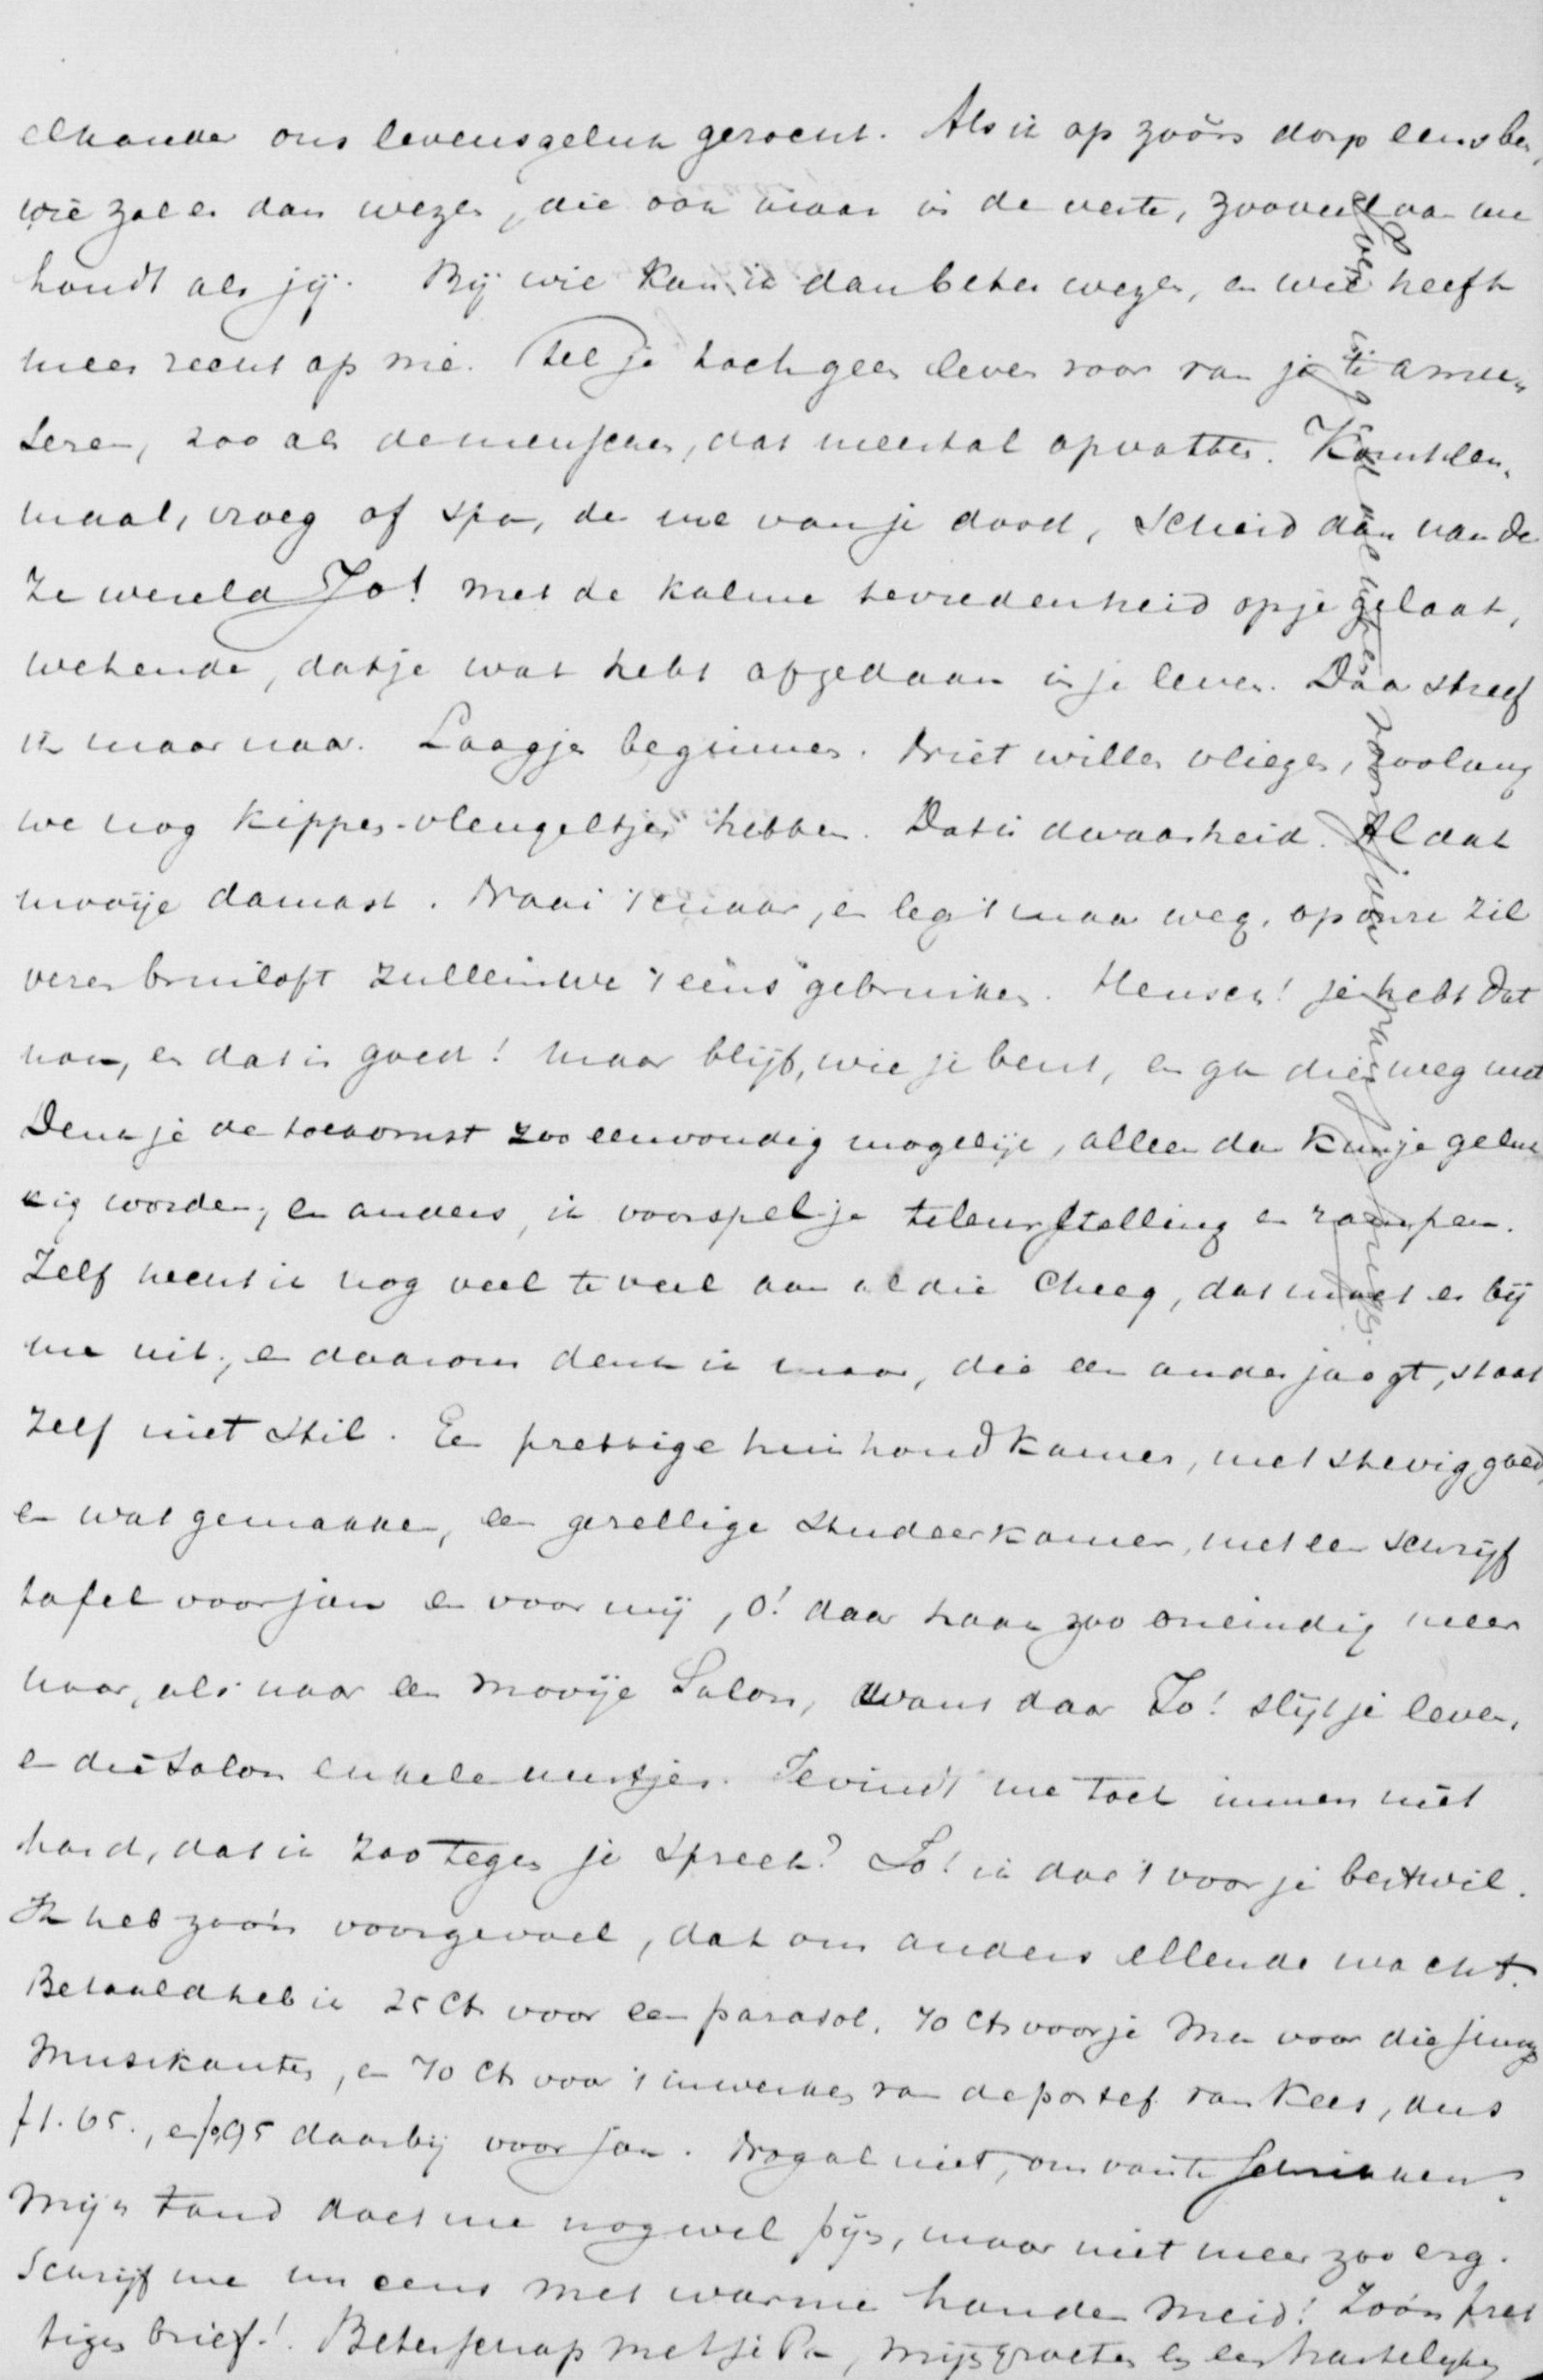 elkander ons levensgeluk gezocht. Als ik op zoo'n dorp eens ben,
wie zal er dan wezen, die ook maar in de verte, zooveel van me
houdt als jij. Bij wie kan ik dan beter wezen, en wie heeft
meer recht op me. Stel je toch geen leven voor van je te amu-
seren, zoo als de menschen, dat meestal opvatten. Komt een-
maal, vroeg of spa, de ure van je dood, scheid dan van de
ze wereld Jo! met de kalme tevredenheid op je gelaat,
wetende, dat je wat hebt afgedaan in je leven. Daar streef
ik maar naar. Laagjes beginnen. Niet willen vliegen, zoolang
we nog kippen-vleugeltjes hebben. Dat is dwaasheid. Al dat
mooije damast. Naai 't maar, en leg 't maar weg, op onze zil
veren bruiloft zullen we 't eens gebruiken. Heusch! je hebt dat
nou, en dat is goed! maar blijf, wie je bent, en ga dien weg niet
Denk je de toekomst zoo eenvoudig mogelijk, alleen dan kun je geluk
kig worden, en anders, ik voorspel je teleurstelling en rampen.
Zelf hecht ik nog veel te veel aan al die , dat moet er bij
me uit, en daarom denk ik maar, die een ander jaagt, staat
zelf niet stil. Een prettige huishoudkamer, met stevig goed,
en wat gemakken, een gezellige studeerkamer, met een schrijf
tafel voor jou en voor mij, o! daar haak zoo oneindig meer
naar, als naar een mooije Salon, want daar Jo! slijt je leven,
en die Salon enkele uurtjes. Je vindt me toch immers niet
hard, dat ik zoo tegen je spreek? Jo! ik doe 't voor je bestwil.
Ik heb zoo'n voorgevoel, dat ons anders ellende wacht.
Betaald heb ik 25 Cts voor een parasol, 70 Cts voor je Ma voor die
Musikanten, en 70 Cts voor 't inwerken van de portef. van Kees, dus
f1.65., en f0,95 daarbij voor jou. Nogal niet, om van te schrikken.
Mijn tand doet me nog wel pijn, maar niet meer zoo erg.
Schrijf me nu eens met warme handen meid! Zoo'n pret
tigen brief! Beterschap met je Pa, mijn groeten en een hartelijken
voor jou van